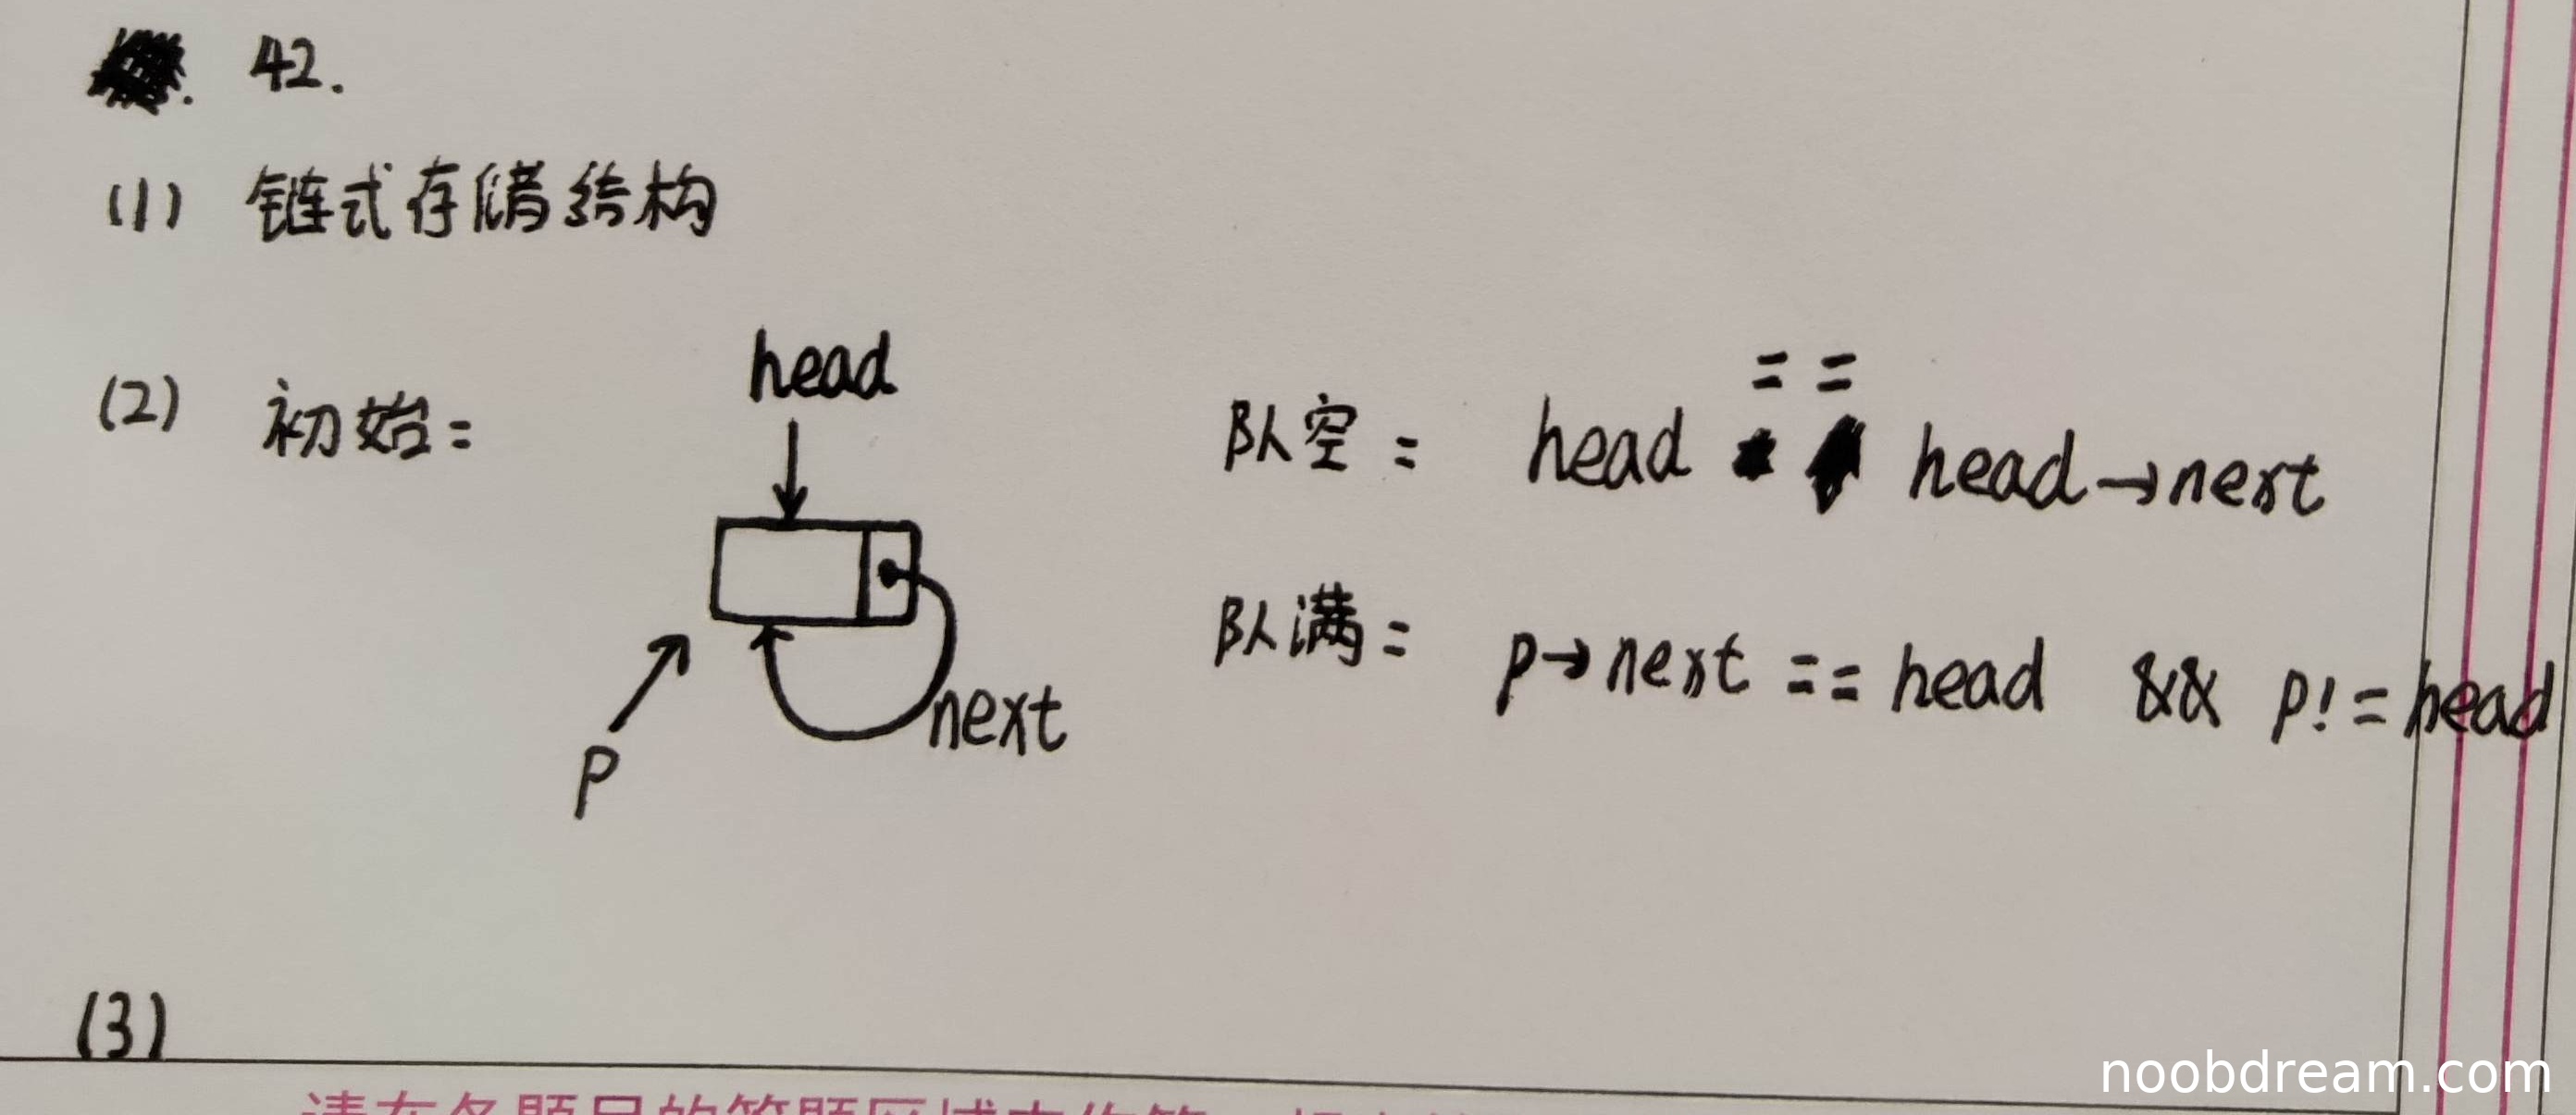 42.
(1) 链式存储结构
(2) 初始:
head
next
P
队空: head == head→next
队满: P→next == head && P! = head
(3)
请在各题目的答题区域内作答
noobdream.com